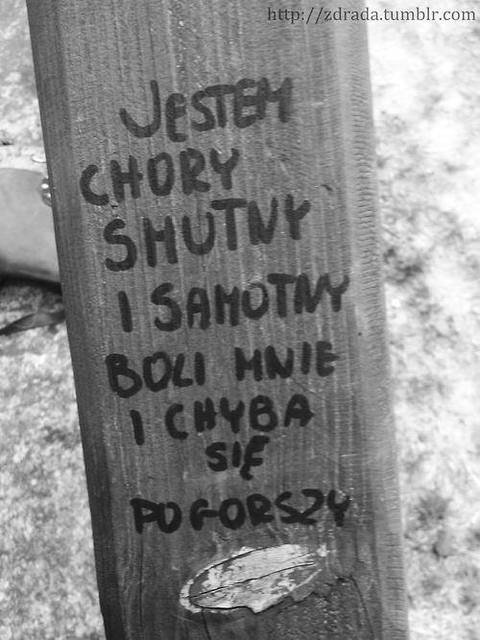 http://zdrada.tumblr.com
JESTEM
CHORY
SMUTNY
I SAMOTNY
BOLI MNIE
I CHYBA
SIĘ
POGORSZY